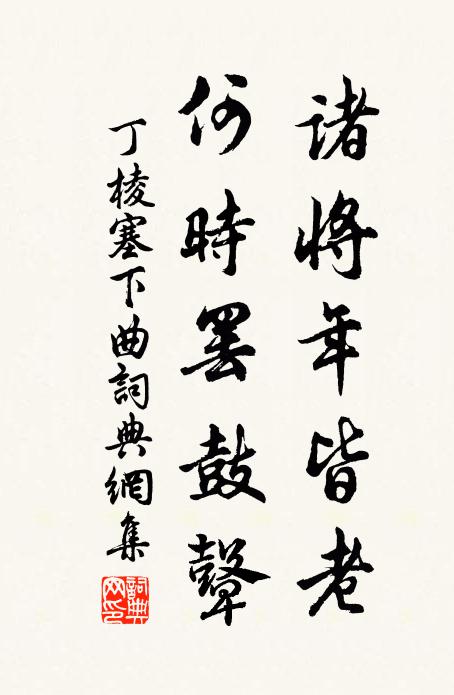 諸將年皆老
何時罷鼓鼙
丁棱塞下曲詞典網集
詞典网印